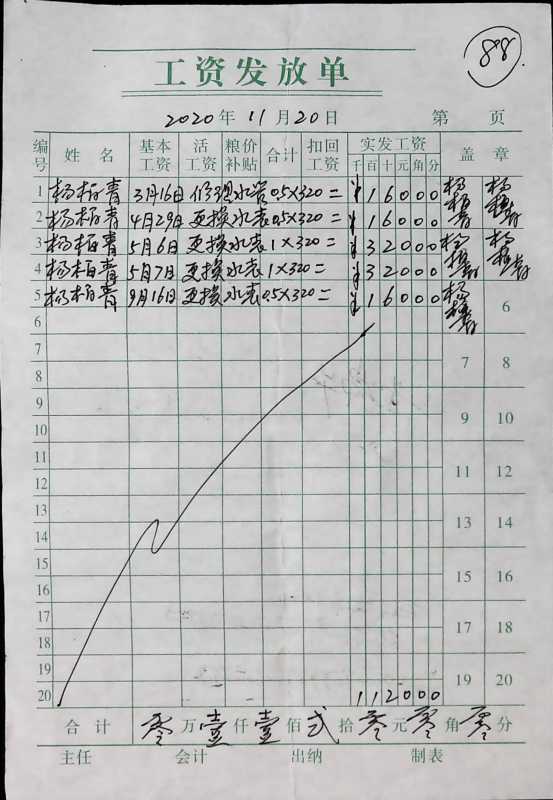 88
工资发放单
2020年 11月20日 第 页
编号 姓名 基本工资 活工资 粮价补贴 合计 扣回工资 实发工资 千百十元角分 盖章
1 杨柏青 3月16日 修理水管 0.5×320= ¥16000 杨柏青 杨柏青
2 杨柏青 4月29日 更换水表 0.5×320= ¥16000
3 杨柏青 5月6日 更换水表 1×320= ¥32000 杨柏青 杨柏青
4 杨柏青 5月7日 更换水表 1×320= ¥32000
5 杨柏青 9月16日 更换水表 0.5×320= ¥16000 杨柏青 6
6
7 7 8
8
9 9 10
10
11 11 12
12
13 13 14
14
15 15 16
16
17 17 18
18
19 19 20
20 112000
合计 零万壹仟壹佰贰拾零元零角零分
主任 会计 出纳 制表